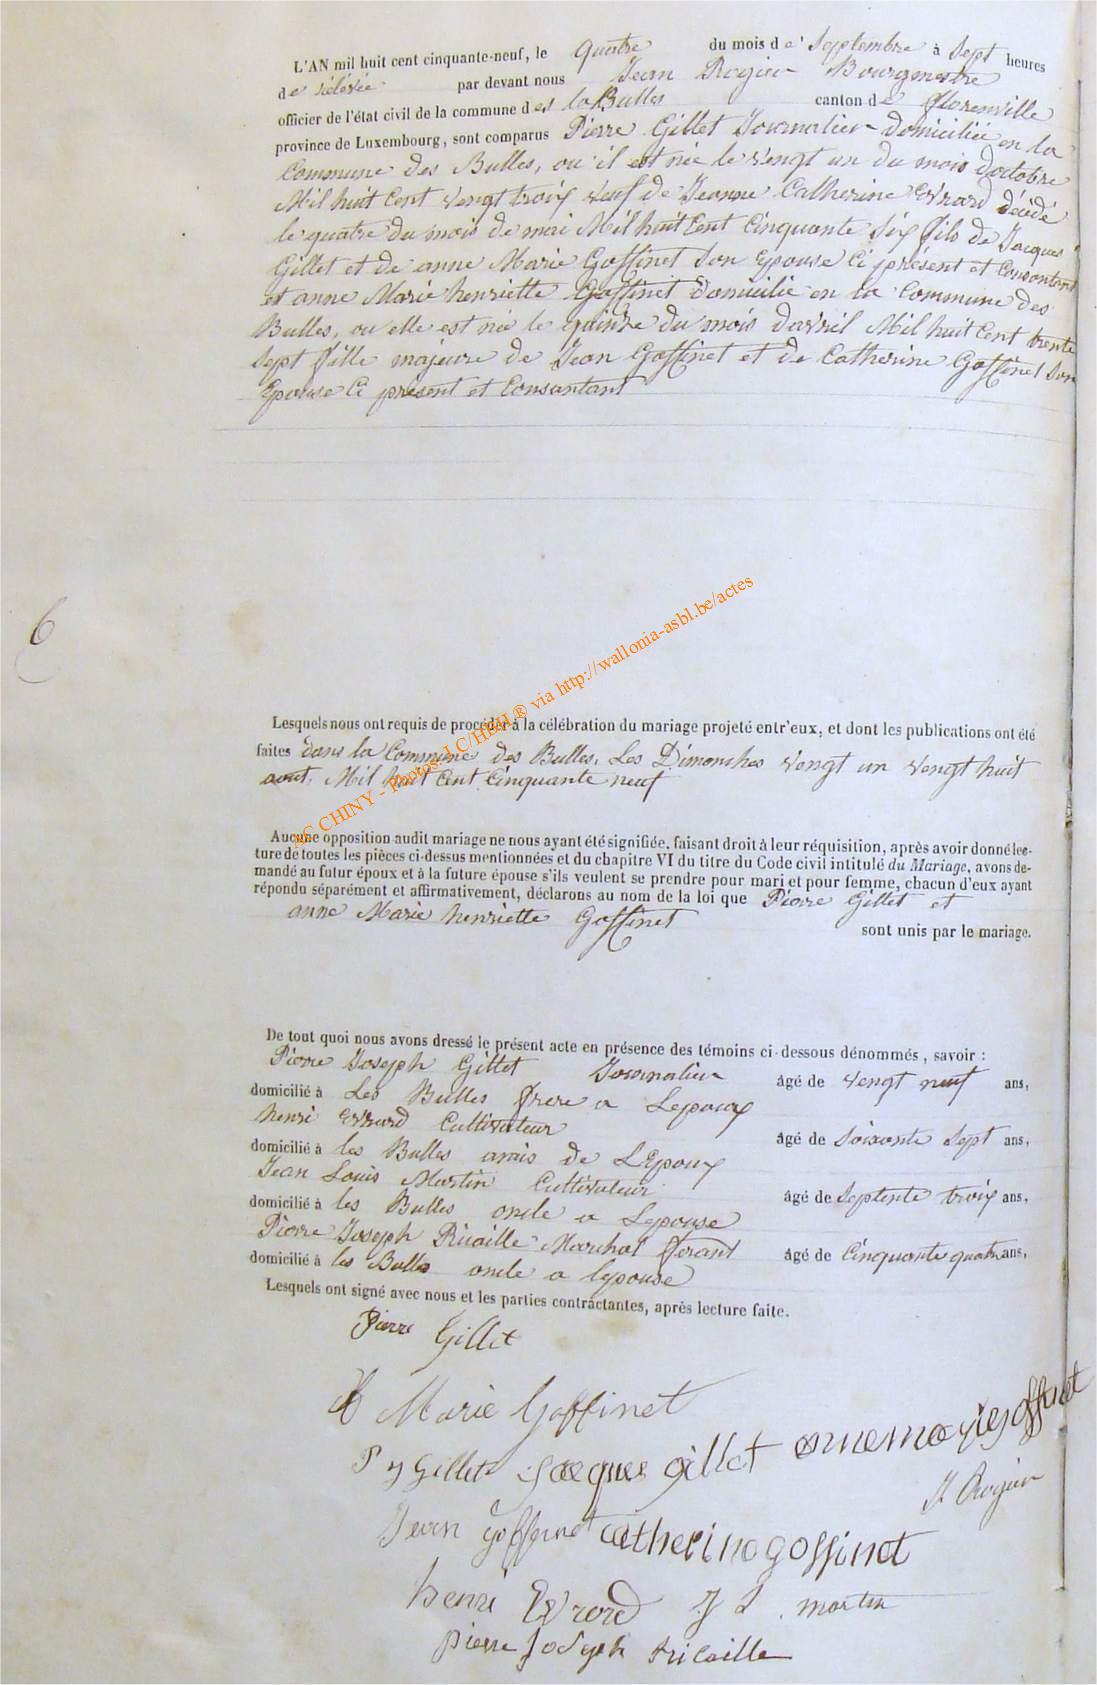 L'AN mil huit cent cinquante-neuf, le quatre du mois de Septembre à Sept heures
de rélévée par devant nous Jean Rogier Bourgmestre
officier de l'état civil de la commune des la Bulles canton de florenville
province de Luxembourg, sont comparus Pierre Gillet Journalier domiciliée en la
Commune des Bulles, ou il est née le vengt un du mois doctobre
Mil huit Cent vengt troix veuf de Jeanne Catherine Evrard décédé
le quatre du mois de mai Mil huit Cent Cinquante Six fils de Jacques
Gillet et de anne Marie Goffinet Son Epouse Ci présent et Consantant
et anne Marie henriette Goffinet domicilié en la Commune des
Bulles, ou elle est née le quinze du mois davril Mil huit Cent trente
Sept fille majeure de Jean Goffinet et de Catherine Goffinet Son
Epouse Ci présent et Consantant
6
Lesquels nous ont requis de procéder à la célébration du mariage projeté entr'eux, et dont les publications ont été
faites dans la Commune des Bulles, Les Dimonches vengt un vengt huit
aout, Mil huit Cent Cinquante neuf
AC CHINY - Photos J.C/HBH® via http://wallonia-asbl.be/actes
Aucune opposition audit mariage ne nous ayant été signifiée, faisant droit à leur réquisition, après avoir donné lec-
ture de toutes les pièces ci-dessus mentionnées et du chapitre VI du titre du Code civil intitulé du Mariage, avons de-
mandé au futur époux et à la future épouse s'ils veulent se prendre pour mari et pour femme, chacun d'eux ayant
répondu séparément et affirmativement, déclarons au nom de la loi que Pierre Gillet et
anne Marie henriette Goffinet
sont unis par le mariage.
De tout quoi nous avons dressé le présent acte en présence des témoins ci-dessous dénommés, savoir :
Pierre Joseph Gillet Journalier âgé de vengt neuf ans,
domicilié à Les Bulles frere a Lepoux
henri Evrard Cultivateur âgé de Soixante Sept ans,
domicilié à les Bulles amis de LEpoux
Jean Louis Martin Cultivateur âgé de Septente troix ans,
domicilié à les Bulles oncle a Lepouse
Pierre Joseph Ricaille Marchal ferant âgé de Cinquante quatre ans,
domicilié à les Bulles oncle a lepouse
Lesquels ont signé avec nous et les parties contractantes, après lecture faite.
Pierre Gillet
H Marie Goffinet
P j Gillet Jacques gillet annemariegoffinet
J Rogier
Jean goffinet catherinegoffinet
henri Evrard J L martin
pierre joseph ricaille